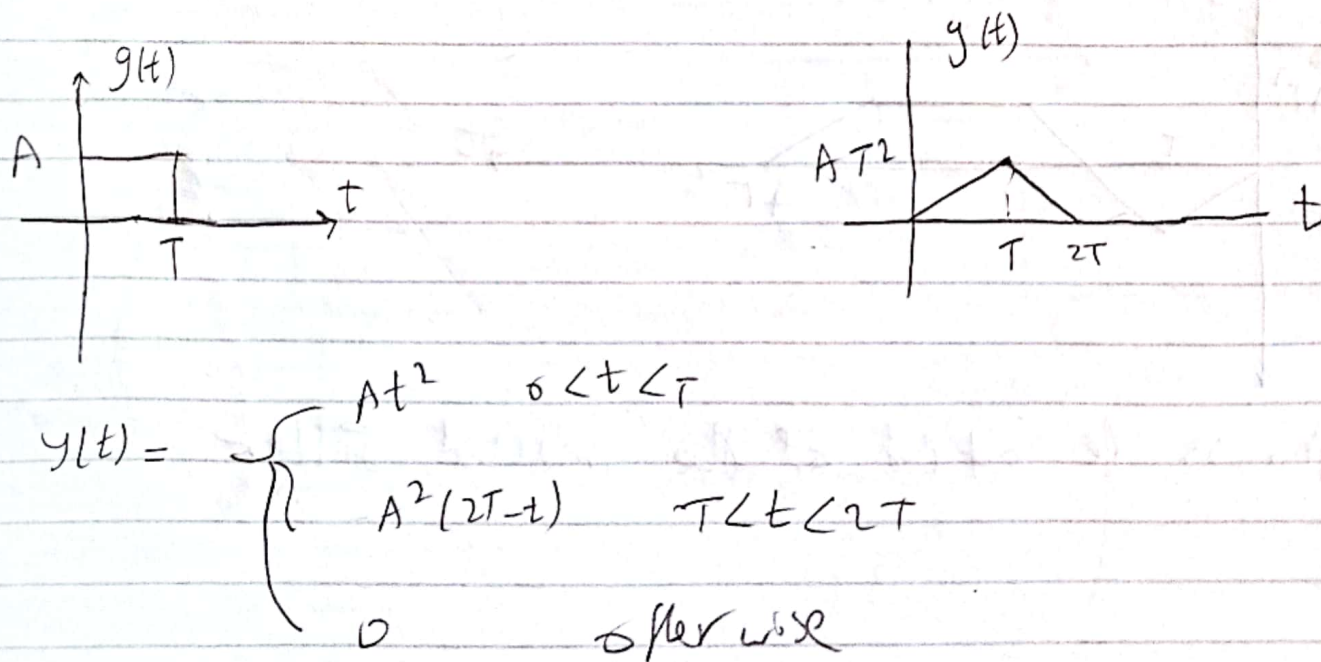 g(t)
y(t)
A
t
T
AT²
t
T 2T
y(t) =
At² 0 < t < T
A²(2T-t) T < t < 2T
0 otherwise